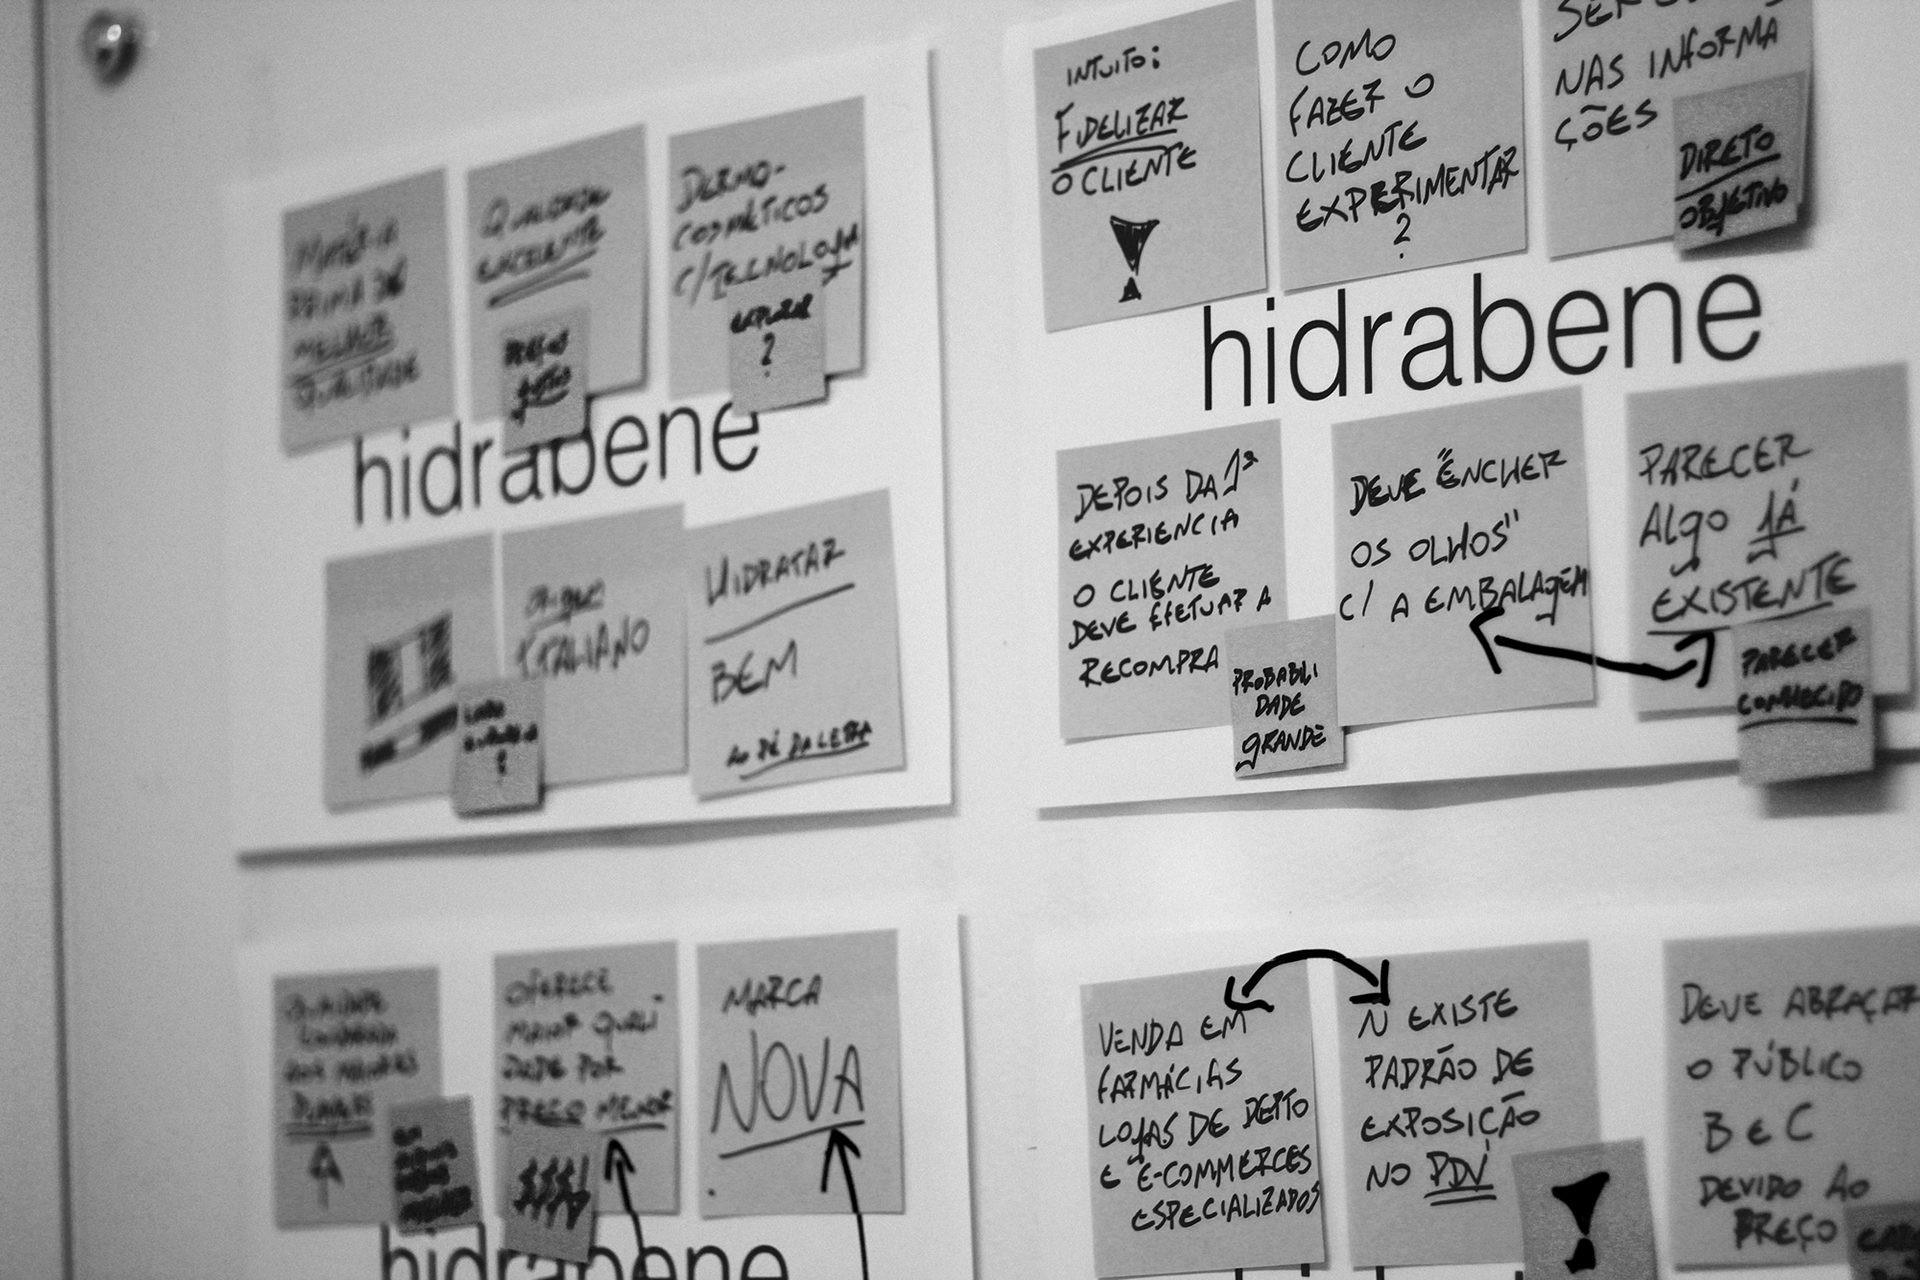 MATÉRIA
PRIMA DE
MELHOR
QUALIDADE
QUALIDADE
EXCELENTE
PREÇO
JUSTO
DERMO-
COSMÉTICOS
C/ TECNOLOGIA
EXPLORAR
?
hidrabene
ITALIANO
?
HIDRATAR
BEM
AO PÉ DA LETRA
INTUITO:
FIDELIZAR
O CLIENTE
!
COMO
FAZER O
CLIENTE
EXPERIMENTAR
?
NAS INFORMA
ÇÕES
DIRETO
OBJETIVO
hidrabene
DEPOIS DA 1ª
EXPERIENCIA
O CLIENTE
DEVE EFETUAR A
RECOMPRA
PROBABILI
DADE
GRANDE
DEVE "ENCHER
OS OLHOS"
C/ A EMBALAGEM
PARECER
ALGO JÁ
EXISTENTE
PARECER
CONHECIDO
OFERECE
MAIOR QUALI
DADE POR
PREÇO MENOR
MARCA
NOVA
hidrabene
VENDA EM
FARMÁCIAS
LOJAS DE DEPTO
E E-COMMERCES
ESPECIALIZADOS
N EXISTE
PADRÃO DE
EXPOSIÇÃO
NO PDV
!
DEVE ABRAÇAR
O PÚBLICO
B e C
DEVIDO AO
PREÇO